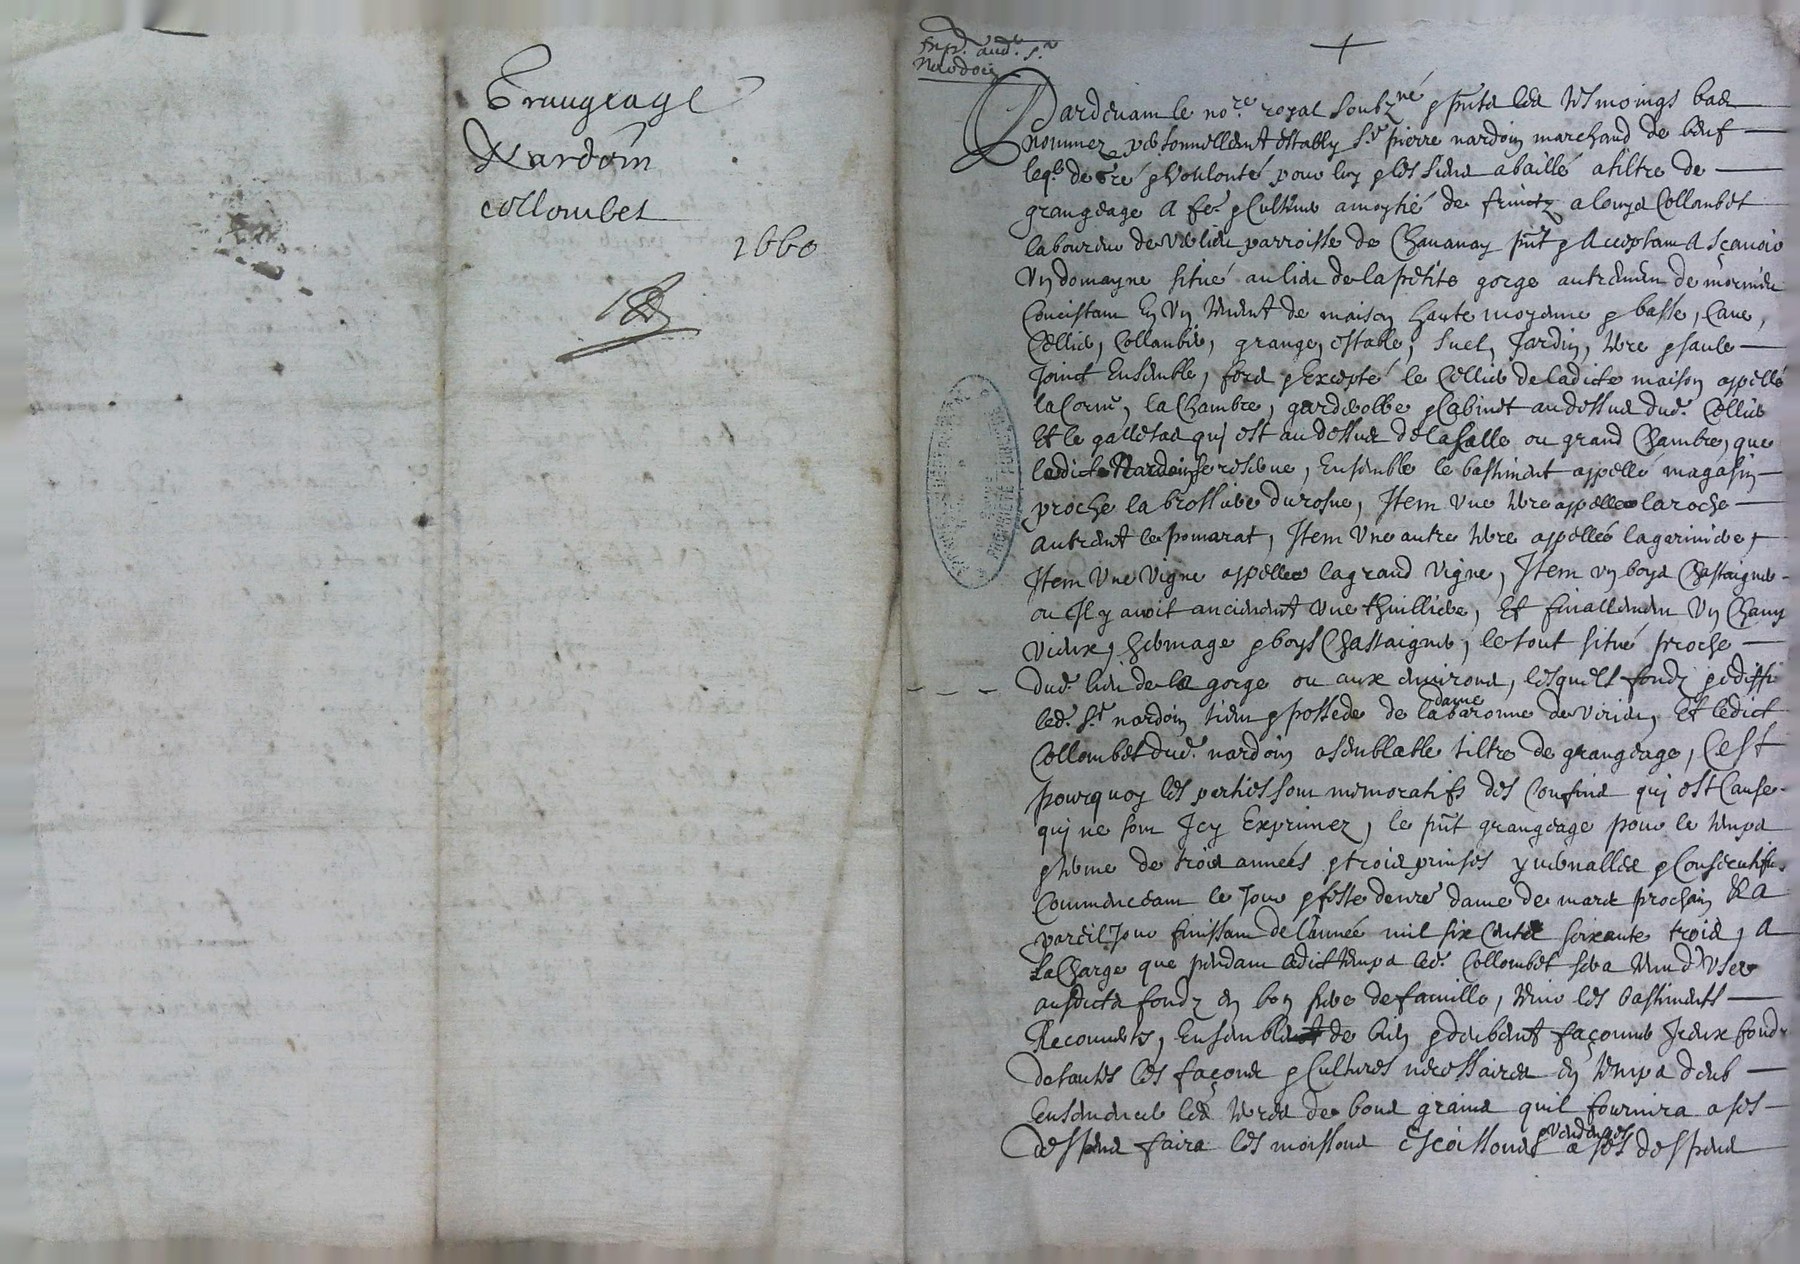 Grangeage
Nardoin
Collombet
1660
Exp. aud. Sr
Nardoin
Pardevant le no.re royal soubz.né & pnts les tesmoings bas
nommez personnellemt estably Sr pierre nardoin marchand de
leql. de gré & voulonté pour luy & les siens a baillé a tiltre de
grangeage a fe. & Culture a moytié de fruictz a louys Collombet
laboureur de Verlieu parroisse de Chavanay pnt & acceptant a sçavoir
Un domayne situé au lieu de la petite gorge autrement de mornieu
Concistant en un tenemt de maison haute moyenne & basse, Cave,
Cellier, Collombier, grange, estable, suel, Jardin, terre & saule
Joinct Ensemble, fors & Excepté le Cellier de ladicte maison appellé
la Chambre, garderobbe & Cabinet au dessus dud. Cellier
Et le galletas qui est au dessus de la salle ou grand Chambre, que
ledict Nardoin se reserve, Ensemble le bastiment appellé magasin
proche la brossiere du rosne, Item Une terre appellee la roche
autremt le pomarat, Item Une autre terre appellée la garinière,
Item Une Vigne appellee la grand Vigne, Item un boys Chastaigner
ou Il y avoit anciennemt Une thuilliere, Et finallement Un Champ
Vieux, hermage & boys Chastaigner, le tout situé proche
dud. lieu de la gorge ou aux environs, lesquels fondz & ediffi
led. Sr nardoin tient & possede de la dame baronne de Virieu, Et ledict
Collombet dud. nardoin a semblable tiltre de grangeage, C'est
pourquoy les parties sont memoratifs des Confins qui est Cause
qui ne sont Icy Exprimez, le pnt grangeage pour le temps
& terme de trois années & trois prinses & Consecutifs
Commenceant le Jour & feste de nre dame de mars prochain Et a
pareil Jour finissant de l'année mil six Cents soixante trois, a
la Charge que pendant ledict temps led. Collombet sera tenu d'User
ausdicts fondz en bon pere de famille, tenir les bastiments
Recouverts, Ensemble de bien & deubemt façonner Iceux fondz
de toutes les façons & Cultures nécessaires en temps deub
Ensemencer les terres de bons grains quil fournira a ses
despens faira les moissons escossons & vendanges a ses despens